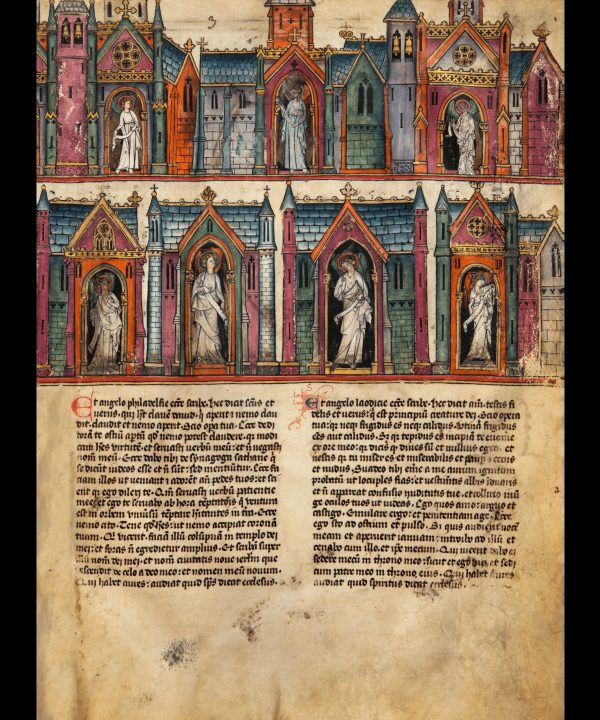 Et angelo philadelfie eccl̄e scribe. hec dicit sc̄us et
uerus. qui h̄t clauē dauid. q̇ aperit ⁊ nemo clau
dit. claudit et nemo aperit. Scio opa tua. Ecce dedi
corā te ostiū aptū qd̄ nemo potest claudere. qi modi
cam h̄es uirtutē. et seruasti uerbū meū. et n̄ negasti
nom̄ meū. Ecce dabo tibi de synagoga sathane
q̇ se dicūt iudeos esse et n̄ sūt. sed mentiūtur. Ecce fa
ciam illos ut ueniant ⁊ adorēt añ pedes tuos. et sci
ent qi ego dilexi te. Qm̄ seruasti uerbū patientie
mee. et ego te seruabo ab hora tēptatiōis q̇ uentura
est in orbem uniūsū tēptare hitantes in tra. Ecce
uenio cito. Tene qd̄ h̄es. ut nemo accipiat coronā
tuam. Qi uicerit. faciā illū colūpnā in templo dei
mei. et foras n̄ egredietur amplius. Et scribā super
illū nom̄ dei mei. et nom̄ ciuitatis noue ierl̄m que
descendit de celo a deo meo. et nomen meū nouum.
Qui habet aures. audiat quid sp̄s dicat ecclesiis.
Et angelo laodicie eccl̄e scribe. Hec dicit am̄. testis fi
delis et uerus. q̇ est principiū creature dei. Scio opera
tua. qi neqȝ frigidus es neqȝ calidus. Utinā frigidus
es aut calidus. Sȝ qi tepidus es incipiā te euomē
ex ore meo. qi dicis qi diues sū et nullius egeo. et
nescis qi tu miser es et miserabilis et paup ⁊ cecus
et nudus. Suadeo tibi emē a me aurum ignitum
probatū ut locuples fias. et uestītis albis īduaris
et n̄ appareat confusio nuditatis tue. et collirio inū
ge oculos tuos ut uideas. Ego quos amo arguo et
castigo. Emulare ergo et penitentiam age. Ecce
ego sto ad ostium et pulso. Si quis audierit uocē
meam et aperuerit ianuam. introibo ad illū et
cenabo cum illo. et ip̄e mecum. Qui uicerit dabo ei
sedere mecū in throno meo. sicut et ego uici et sedi
cum patre meo in throno eius. Qui habet aures
audiat quid spiritus dicat ecclesiis.